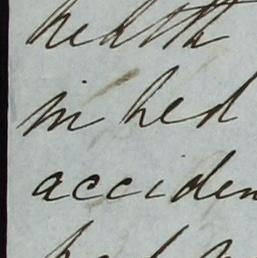 health
in bed
acciden